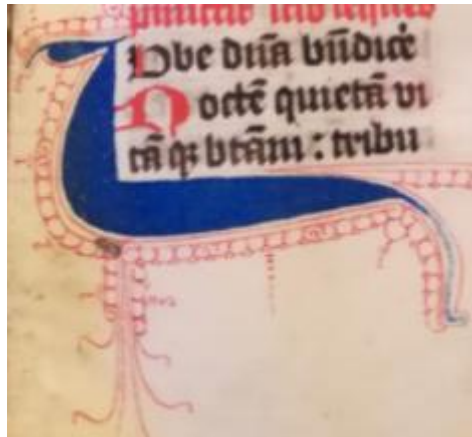 IVbe dn̄a bn̄dicē
Noctē quietā vi
tā qꝫ btām : tribu